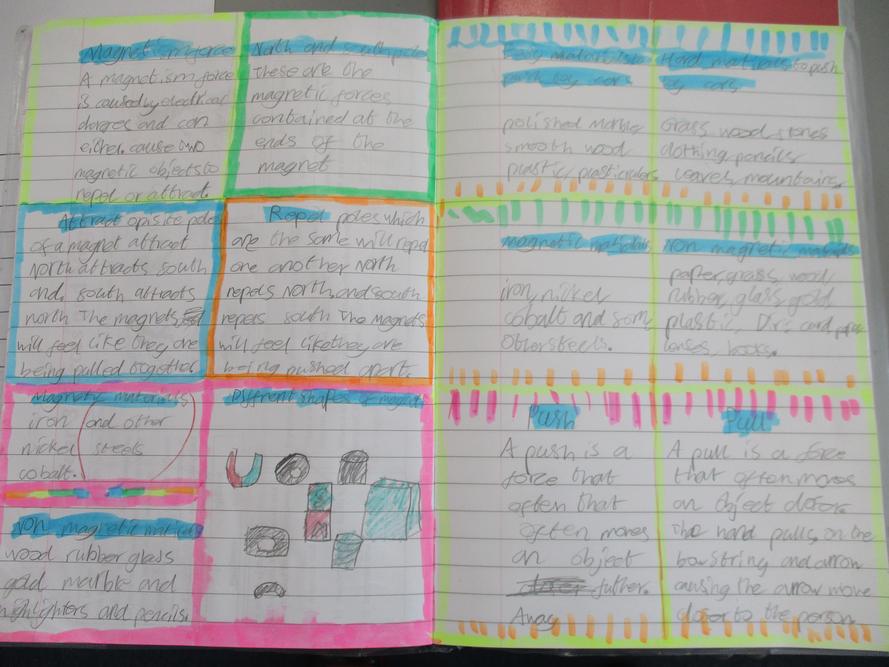 Magnetism force
A magnetism force
is caused by electrical
charges and can
either cause two
magnetic objects to
repel or attract.
North and south pole
These are the
magnetic forces
contained at the
ends of the
magnet
Attract opisite pole
of a magnet attract
North attracts south
and south attracts
north The magnets
will feel like they are
being pulled together
Repel poles which
are the same will repel
one another North
repels North, and south
repels south The Magnets
will feel like they are
being pushed apart.
Magnetic materials
iron and other
nickel steels
cobalt.
Non magnetic
wood rubber glass
gold marble and
highlighters and pencils.
Diffrent shapes of magnets
S
N
to
push toy cars
polished marble
smooth wood
plastic,
Hard to push
toy cars
Grass wood stones
clothing, pencils,
leaves, mountains,
magnetic
iron, nickel
cobalt and some
other steels.
Non magnetic
paper, grass, wood
rubber, glass, gold
plastic, and
lenses, books.
Push
A push is a
force that
often that
often moves
an object
futher.
Away
Pull
A pull is a force
that often moves
an object closer
The hand pulls on the
bow string and arrow
causing the arrow move
closer to the person